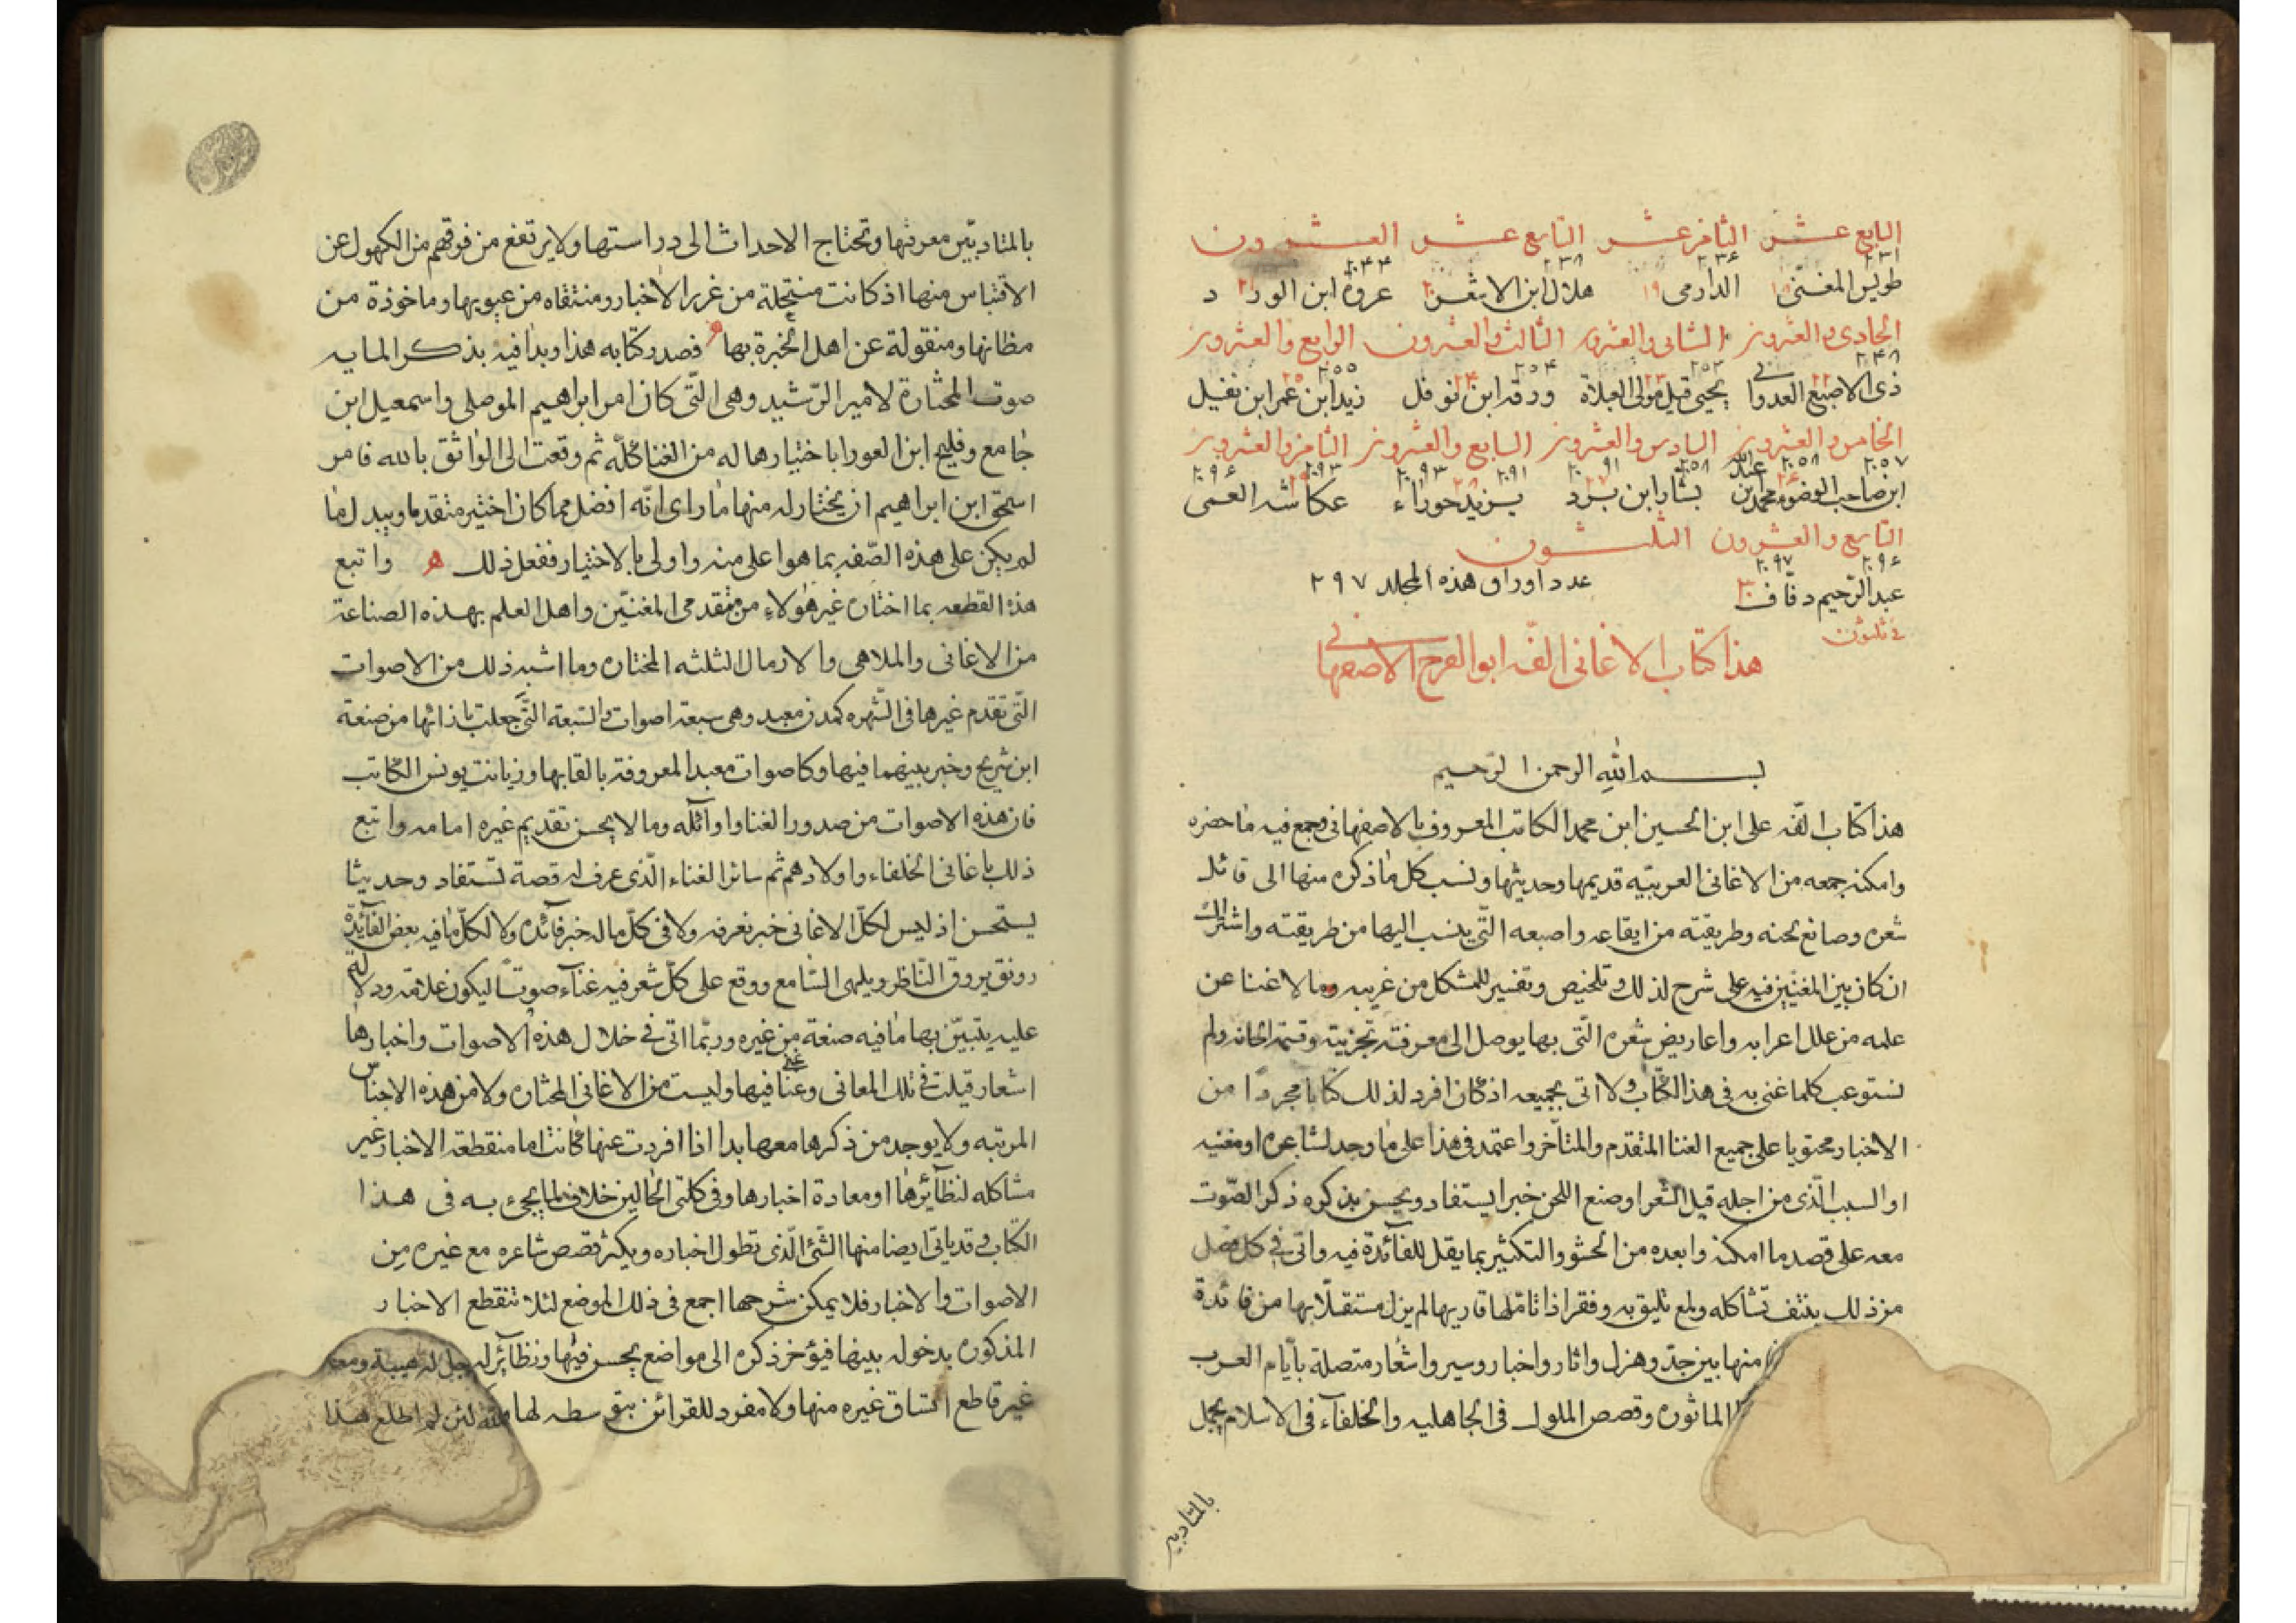 السابع عشر الثامن عشر التاسع عشر العشرون
۲۳۱ ۲۳۶ ۲۳۸ ۲۴۴
طويس المغنّى ۱۸ الدارمى ۱۹ هلال ابن الاشعر ۲۰ عروة ابن الورد ۲۱
الحادى والعشرون الثانى والعشرون الثالث والعشرون الرابع والعشرون
۲۴۸ ۲۵۲ ۲۵۴ ۲۵۵
ذى الاصبع العدوانى ۲۲ يحيى قيل مولى العبلاة ۲۳ ورقه ابن نوفل ۲۴ زيد ابن عمر ابن نفيل ۲۵
الخامس والعشرون السادس والعشرون السابع والعشرون الثامن والعشرون
ابن صاحب الوضوء محمد ابن عبدالله بشار ابن برد يزيد حوراء عكاشه العمى
التاسع والعشرون الثلثــون
۲۹۶ ۲۹۷
عبد الرّحيم دفّاف ۳۰ عدد اوراق هذه المجلد ۲۹۷
هذا كتاب الاغانى الفّه ابو الفرج الاصفهانى
بسم الله الرحمن الرّحيم
هذا كتاب الفّه على ابن الحسين ابن محمد الكاتب المعروف بالاصفهانى وجمع فيه ما حضره
وامكنه جمعه من الاغانى العربيّه قديمها وحديثها ونسب كل ما ذكره منها الى قائل
شعره وصانع لحنه وطريقته من ايقاعه واصبعه الّتى ينسب اليها من طريقته واشتراك
ان كان بين المغنيّين فيه على شرح لذلك وتلخيص وتفسير للمشكل من غريبه وما لا غنا عن
علمه من علل اعرابه واعاريض شعره الّتى بها يوصل الى معرفته تجزيته وقسمة الحانه ولم
نستوعب كلما غنى به فى هذا الكتاب ولا اتى بجميعه اذ كان افرد لذلك كتابا مجردًا من
الاخبار محتويا على جميع الغنا المتقدم والمتأخر واعتمد فى هذا على ما وجد لشاعره او مغنيه
او السبب الّذى من اجله قيل الشعر او صنع اللحن خبرا يستفاد ويحسن بذكره ذكر الصّوت
معه على قصد ما امكنه وابعده من الحشو والتكثير بما يقل للفآئدة فيه واتى فى كل فصل
من ذلك بنتف تشاكله ولمع تليق به وفقر اذا تامّلها قاريها لم يزل مستقلّا بها من فائدة
منها بين جدّ وهزل واثار واخبار وسير واشعار متصلة بايّام العرب
الماثوره وقصص الملوك فى الجاهليه والخلفآء فى الاسلام يجمل
بالمتادبين
بالمتادبيّن معرفتها وتحتاج الاحداث الى دراستها ولا يرتفع من فوقهم من الكهول عن
الاقتباس منها اذ كانت منتحلة من غرر الاخبار ومنتقاه من عيونها وماخوذة من
مظانها ومنقولة عن اهل الخبرة بها فصدر كتابه هذا وبدا فيه بذكر المايه
صوت المختارة لامير الرّشيد وهى الّتى كان امر ابراهيم الموصلى واسمعيل ابن
جامع وفليح ابن العورا باختيارها له من الغنا كلّه ثم وقعت الى الواثق بالله فامر
اسحق ابن ابراهيم ان يختار له منها ما راى انّه افضل مما كان اختير متقدما ويبدل ما
لم يكن على هذه الصّفه بما هو اعلى منه واولى بالاختيار ففعل ذلك واتبع
هذه القطعه بما اختاره غير هؤلاء من متقدمى المغنيّين واهل العلم بهذه الصناعة
من الاغانى والملاهى والارمال الثلثه المختاره وما اشبه ذلك من الاصوات
الّتى تقدم غيرها فى الشّهره كمدن معبد وهى سبعة اصوات والسّبعة الّتى جعلت بازائها من صنعة
ابن شريح وخبر بينهما فيها وكاصوات معبد المعروفة بالقابها وزيانت يونس الكاتب
فان هذه الاصوات من صدور الغنا واوآئله وما لا يحسن تقديم غيره امامه واتبع
ذلك باغانى الخلفاء واولادهم ثم سائر الغناء الّذى عرف له قصة تستفاد وحديثا
يستحسن اذ ليس لكلّ الاغانى خبر نعرفه ولا فى كلّ ما له خبر فآئده ولا لكلّ ما فيه بعض الفآئدة
رونق يروق النّاظر ويلهى السّامع ووقع على كلّ شعر فيه غنآء صوتًا ليكون علامة ودلالة
عليه يتبيّن بها ما فيه صنعة من غيره وربّما اتى فى خلال هذه الاصوات واخبارها
اشعار قيلت فى تلك المعانى وغنّا فيها وليست من الاغانى المختاره ولا من هذه الاجناس
المرتبه ولا يوجد من ذكرها معها بدا اذا افردت عنها كانت اما منقطعة الاخبار غير
مشاكله لنظآئرها او معادة اخبارها وفى كلتى الحالين خلاف لما يجىء به فى هذا
الكتاب وقد ياتى ايضا منها الشّئ الّذى تطول اخباره ويكثر قصص شاعره مع غيره من
الاصوات والاخبار فلا يمكن شرحها اجمع فى ذلك الموضع لئلا تنقطع الاخبار
المذكوره بدخوله بينها فيؤخر ذكره الى مواضع يحسن فيها ونظآئر له
غير قاطع اتساق غيره منها ولا مفرد للقرائن بتوسطه لها